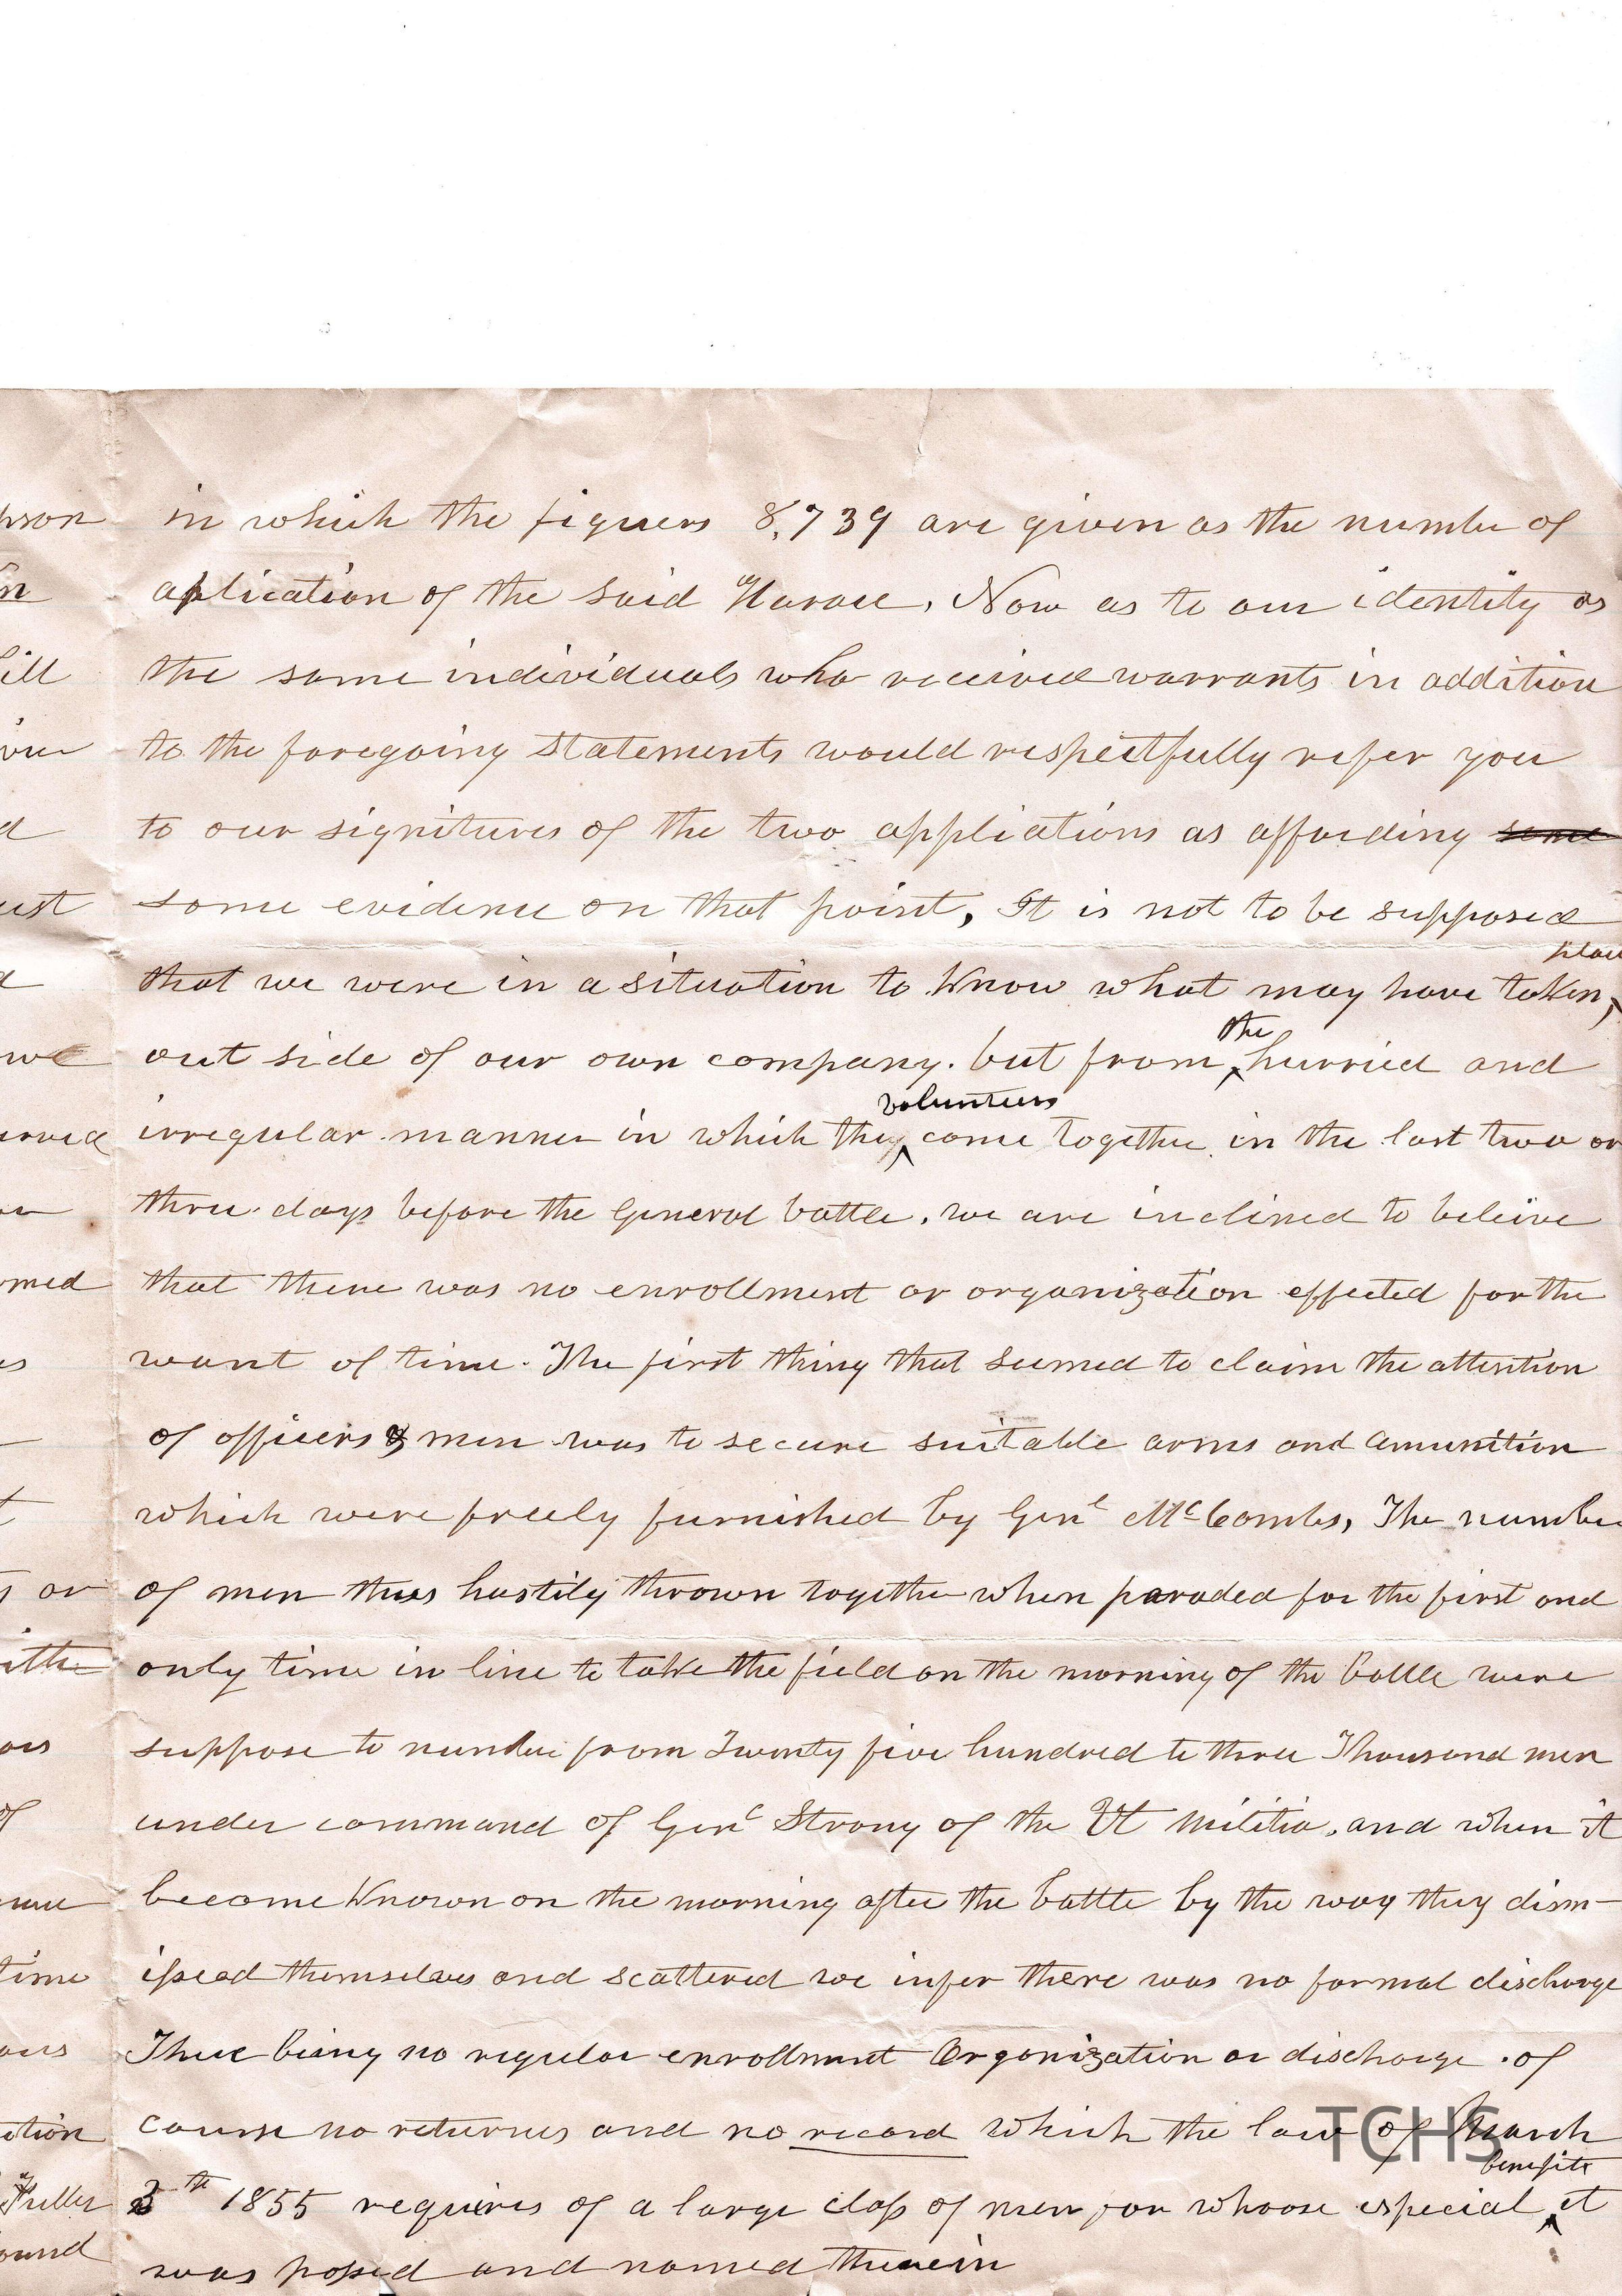 in which the figuers 8,739 are given as the numbe of
aplication of the said Horace. Now as to our identity as
the same individuals who received warrants in addition
to the foregoing statements would respectfully refer you
to our signitures of the two appliations as affording some
some evidence on that point, It is not to be supposed
place
that we were in a situation to know what may have taken,
out side of our own company. but from the hurried and
volunteers
irregular manner in which they come together in the last two or
three days before the General battle, we are inclined to beleive
that there was no enrollment or organization effected for the
want of time. The first thing that seemed to claim the attention
of officers & men was to secure suitable arms and amunition
which were freely furnished by Genl McCombs, The number
of men thus hastily thrown together when paraded for the first and
only time in line to take the field on the morning of the battle were
suppose to number from Twenty five hundred to three Thousand men
under command of Genl Strong of the Vt Militia, and when it
become known on the morning after the battle by the way they dism-
issead themselves and scattered we infer there was no formal discharge
There being no regular enrollment Organization or discharge . of
course no returnes and no record which the law of March
benefits
3th 1855 requires of a large class of men for whoose especial it
was possed and named therein
pson
In
ill
d
ust
d
we
or
med
es
t
or
ous
of
time
ous
ation
Fuller
ound
TCHS